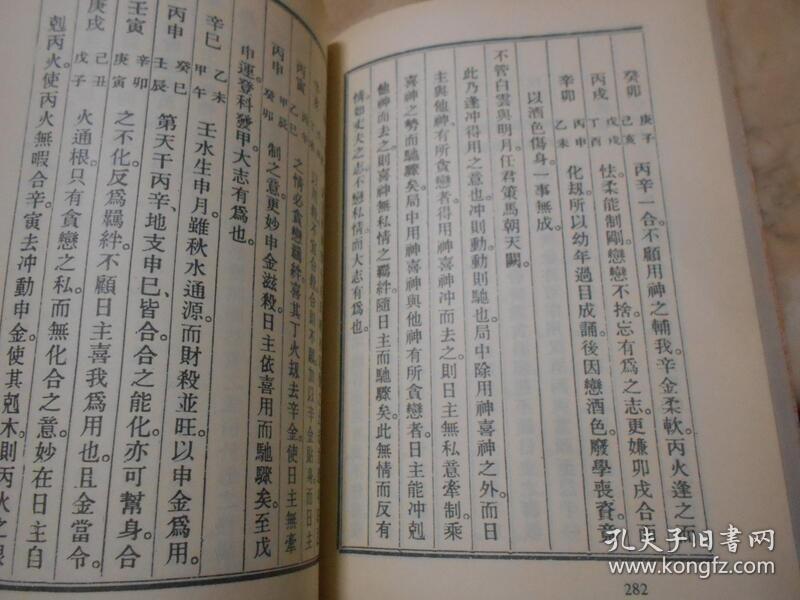 癸卯 庚子 己亥 丙辛一合不顧用神之輔我。辛金柔軟。丙火逢之而
丙戌 戊戌 丁酉 怯。柔能制剛。戀戀不捨。忘有爲之志。更嫌卯戌合而
辛卯 丙申 乙未 化刼。所以幼年過目成誦。後因戀酒色。廢學喪資。竟
以酒色傷身。一事無成。
不管白雲與明月。任君策馬朝天闕。
此乃逢冲得用之意也。冲則動。動則馳也。局中除用神喜神之外。而日
主與他神。有所貪戀者。得用神喜神冲而去之。則日主無私意牽制。乘
喜神之勢而馳驟矣。局中用神喜神與他神有所貪戀者。日主能冲剋
他神而去之。則喜神無私情之羈絆。隨日主而馳驟矣。此無情而反有
情。如丈夫之志。不戀私情而大志有爲也。
282
之情。必貪戀羈絆。喜其丁火刼去辛金。使日主無牽
丙申 癸卯 制之意。更妙申金滋殺。日主依喜用而馳驟矣。至戊
申運。登科發甲。大志有爲也。
辛巳 乙未 甲午 壬水生申月。雖秋水通源。而財殺並旺。以申金爲用。
丙申 癸巳 壬辰 第天干丙辛、地支申巳、皆合。合之能化。亦可幫身。合
壬寅 辛卯 庚寅 之不化。反爲羈絆。不顧日主喜我爲用也。且金當令。
庚戌 己丑 戊子 火通根。只有貪戀之私。而無化合之意。妙在日主自
剋丙火。使丙火無暇合辛。寅去冲動申金。使其剋木。則丙火之根
孔夫子旧书网
kongfz.com